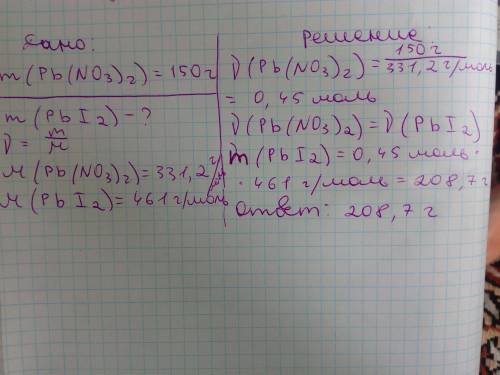 Дано:
m (Pb(NO₃)₂) = 150 г
m (Pb I₂) - ?
ν = m/M
M (Pb(NO₃)₂) = 331,2 г/моль
M (Pb I₂) = 461 г/моль
Решение:
ν (Pb(NO₃)₂) = 150 г / 331,2 г/моль
= 0,45 моль
ν (Pb(NO₃)₂) = ν (Pb I₂)
m (Pb I₂) = 0,45 моль ·
· 461 г/моль = 208,7 г
Ответ: 208,7 г